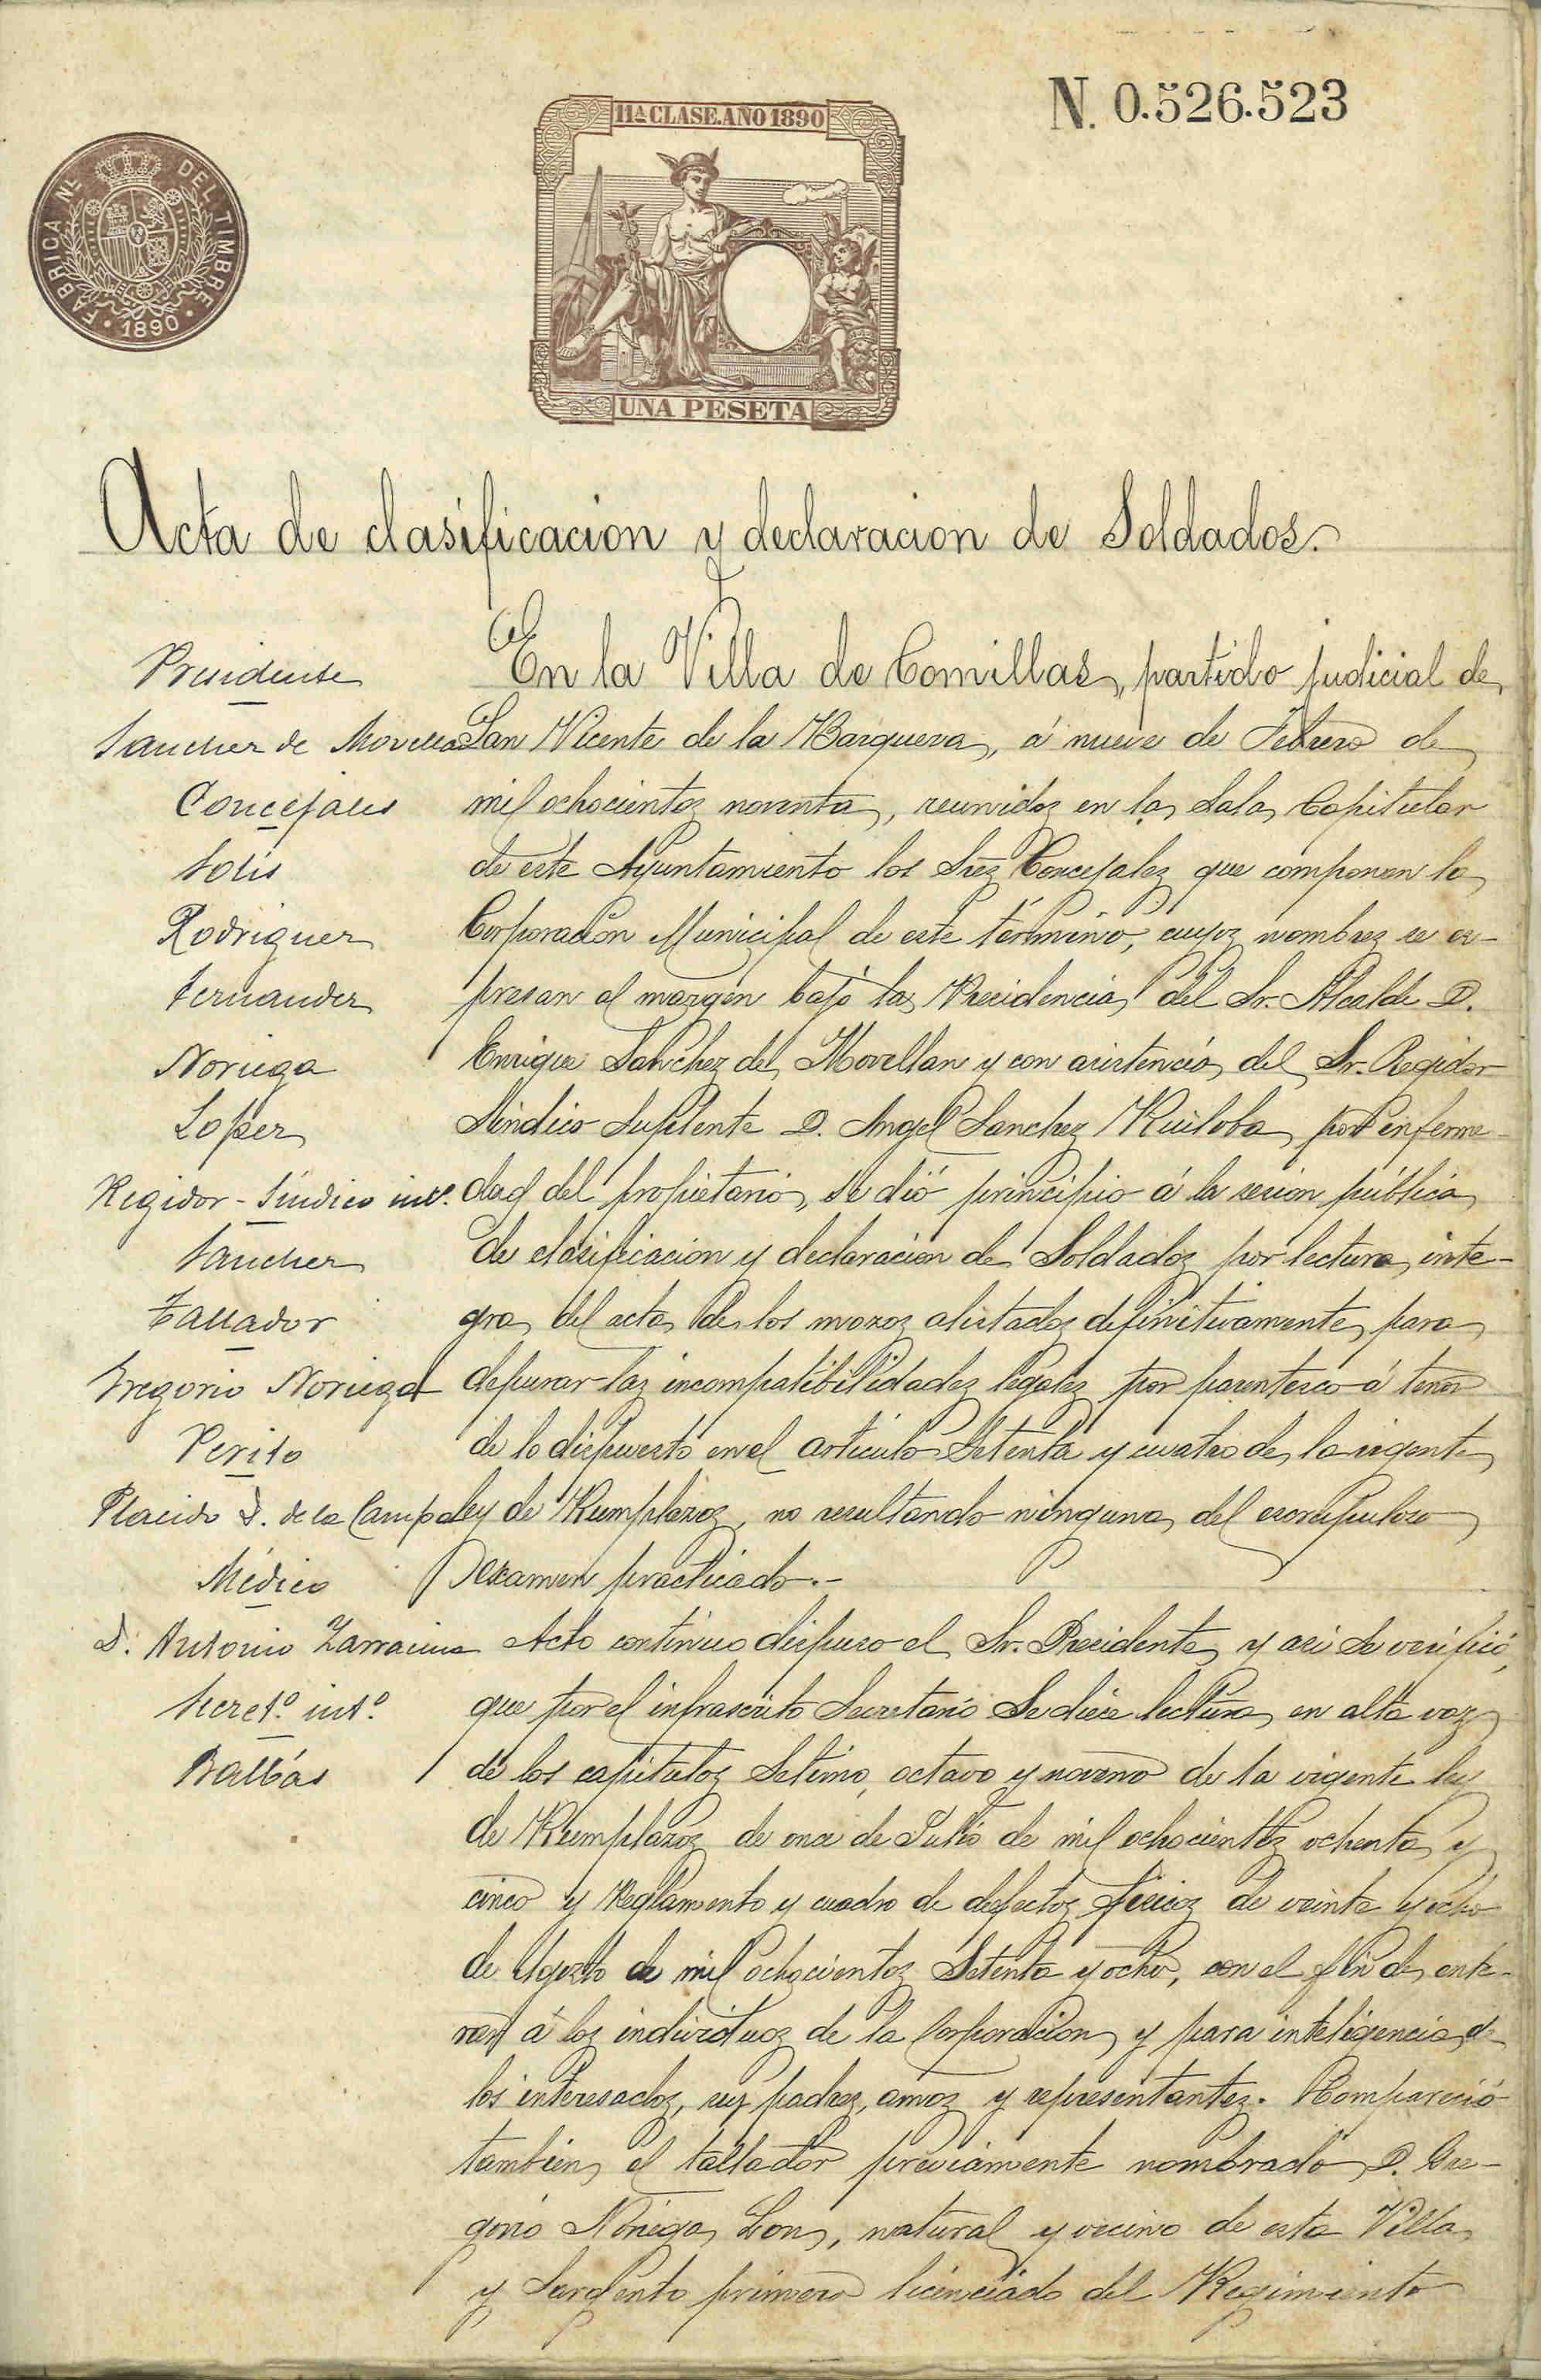 N. 0.526.523
11ª CLASE. AÑO 1890
FABRICA Nˡ DEL TIMBRE
· 1890 ·
UNA PESETA
Acta de clasificacion y declaracion de Soldados.
Presidente
Sanchez de Movellan
Concejales
Solis
Rodriguez
Fernandez
Noriega
Lopez
Regidor-Síndico intº.
Sanchez
Tallador
Gregorio Noriega
Perito
Placido S. de la Campa
Médico
D. Antonio Zarracina
Secretº. intº.
Balbás
En la Villa de Comillas, partido judicial de
San Vicente de la Barquera, á nueve de Febrero de
mil ochocientos noventa, reunidos en la Sala Capitular
de este Ayuntamiento los Sres Concejales que componen la
Corporación Municipal de este término, cuyos nombres se es-
presan al margen bajo la Presidencia del Sr. Alcalde D.
Enrique Sanchez de Movellan y con asistencia del Sr. Regidor
Síndico Suplente D. Angel Sanchez Ruiloba, por enferme-
dad del propietario, se dió principio á la sesion pública
de clasificacion y declaracion de Soldados por lectura inte-
gra del acta de los mozos alistados definitivamente, para
depurar las incompatibilidades legales por parentesco á tenor
de lo dispuesto en el artículo Setenta y cuatro de la vigente
ley de Reemplazos, no resultando ninguna del escrupuloso
examen practicado.-
Acto contínuo dispuso el Sr. Presidente, y asi se verificó,
que por el infrascrito Secretario Se diese lectura en alta voz
de los capítulos Setimo, octavo y noveno de la vigente ley
de Reemplazos de once de Julio de mil ochocientos ochenta y
cinco y Reglamento y cuadro de defectos físicos de veinte y ocho
de Agosto de mil ochocientos Setenta y ocho, con el fin de ente-
rar á los individuos de la Corporacion y para inteligencia de
los interesados, sus padres, amos y representantes. Compareció
tambien el tallador préviamente nombrado D. Gre-
gorio Noriega Lon, natural y vecino de esta Villa
y Sargento primero licenciado del Regimiento